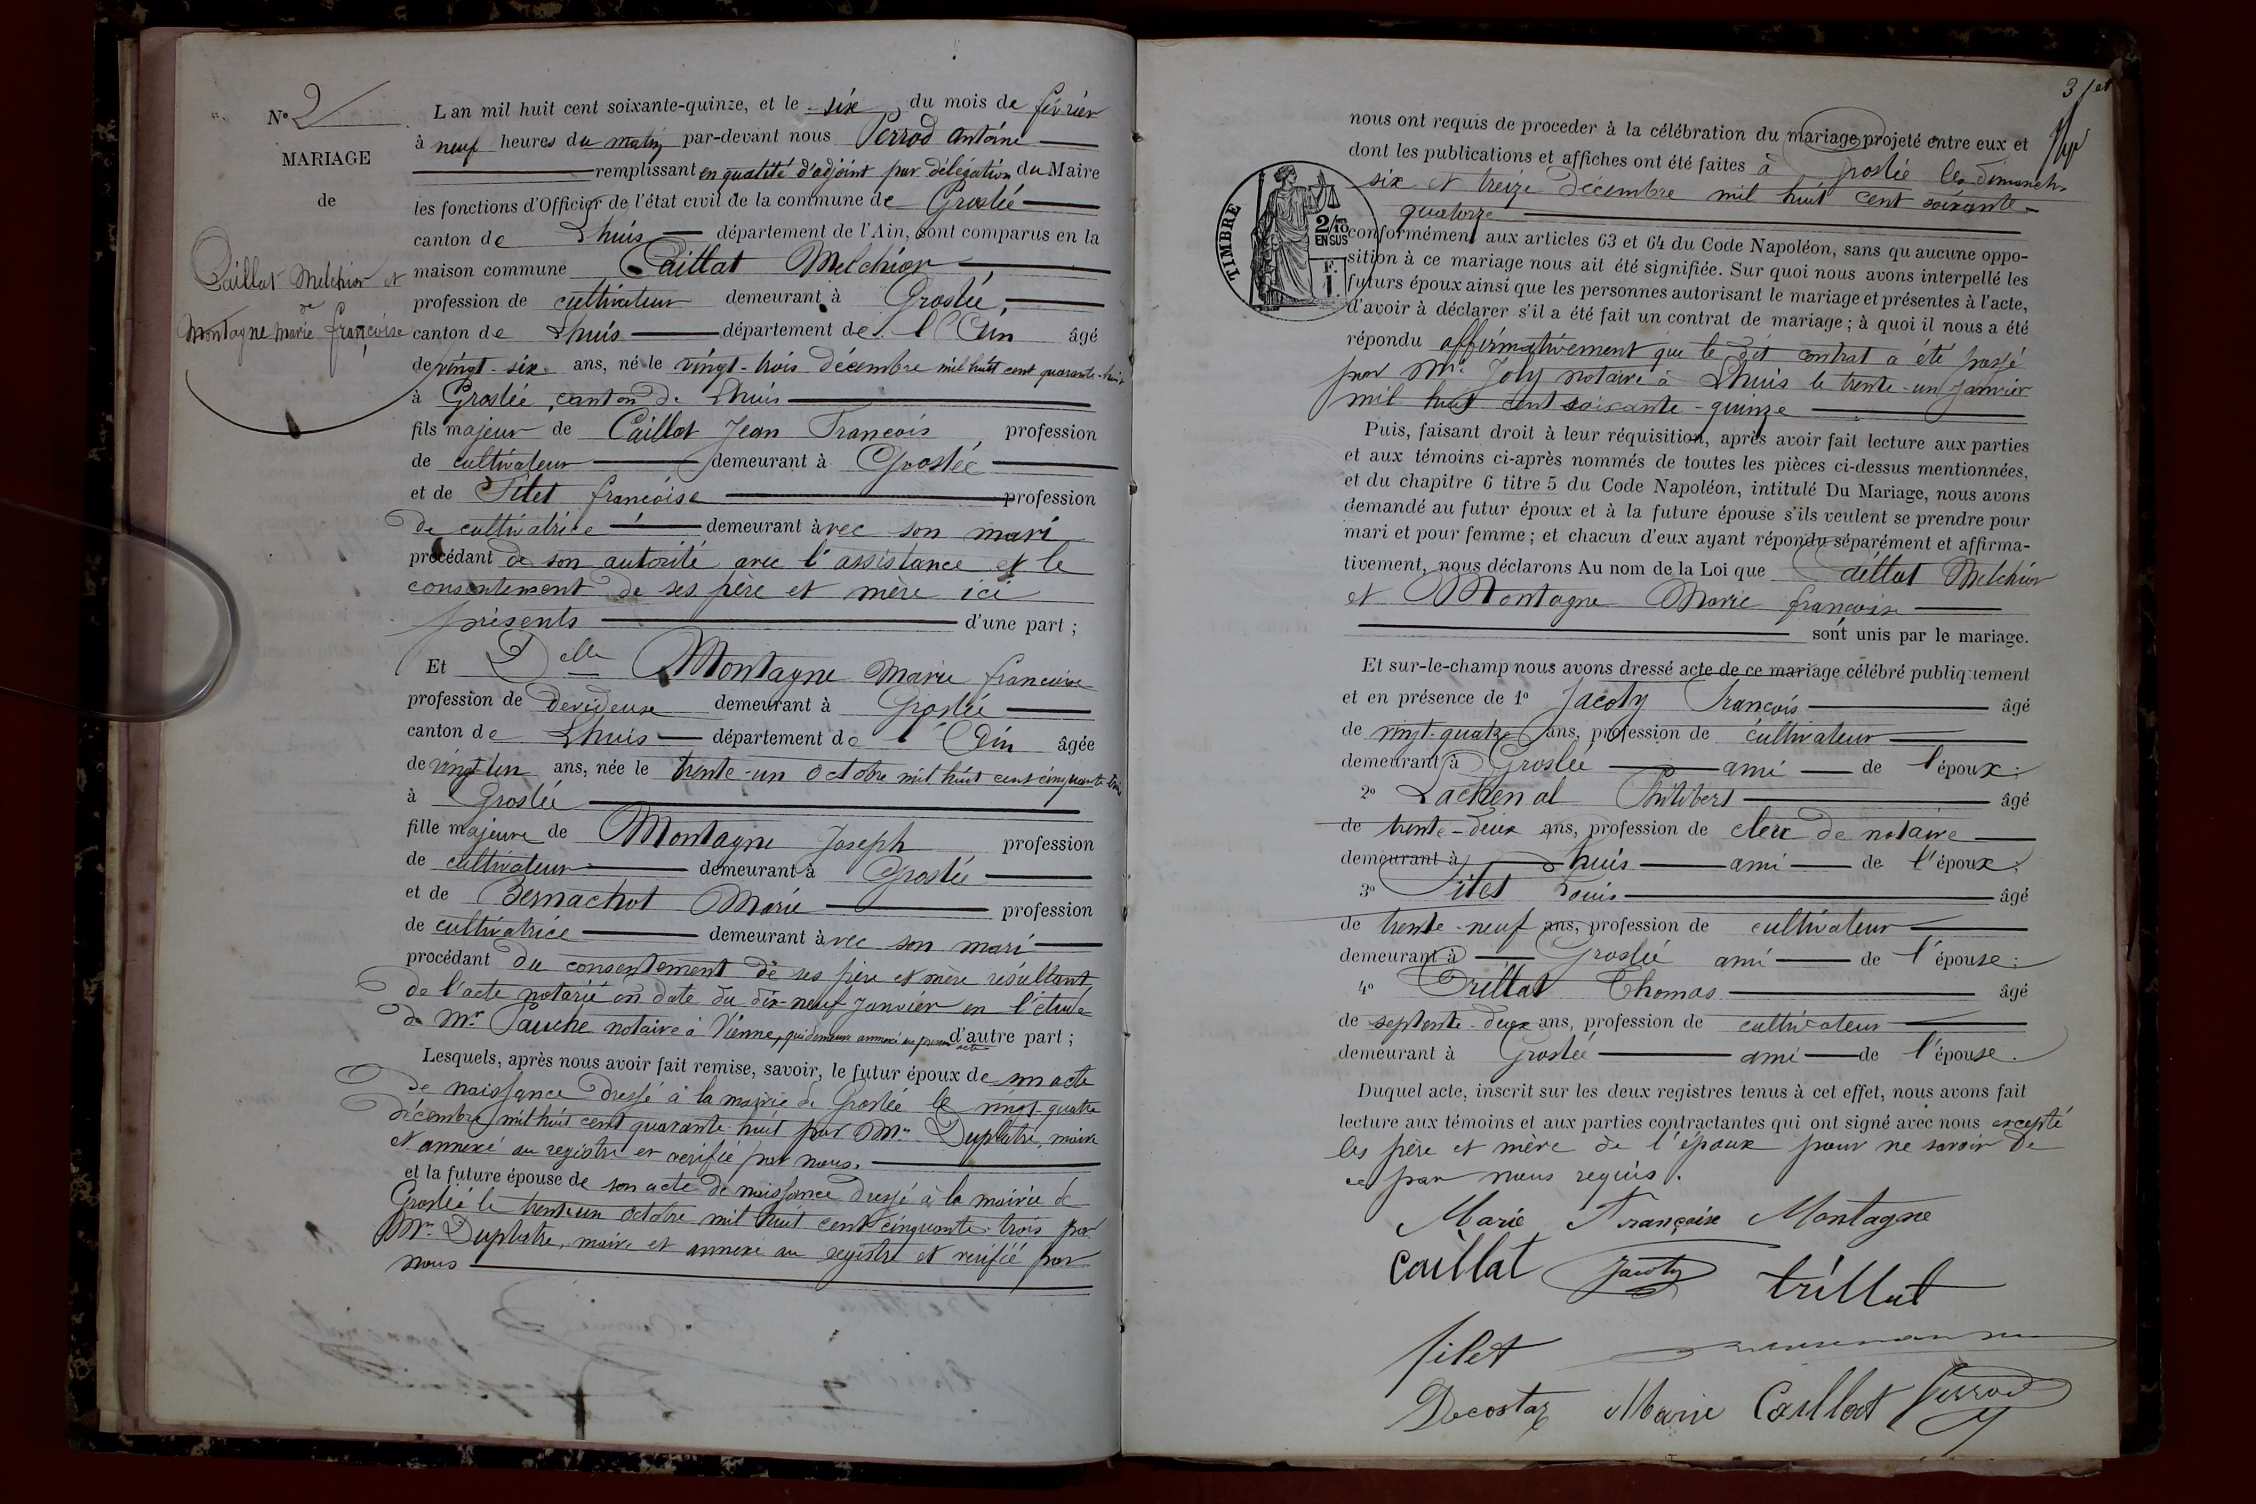 N° 2
MARIAGE
de
Caillat Melchior et
de
Montagne Marie françoise
Lan mil huit cent soixante-quinze, et le six du mois de février
à neuf heures du matin par-devant nous Perrod Antoine
remplissant en qualité d'adjoint par délégation du Maire
les fonctions d'Officier de l'état civil de la commune de Groslée
canton de Lhuis département de l'Ain, sont comparus en la
maison commune Caillat Melchior
profession de cultivateur demeurant à Groslée,
canton de Lhuis département de l'Ain âgé
de vingt-six ans, né le vingt-trois décembre mil huit cent quarante-huit
à Groslée, canton de Lhuis
fils majeur de Caillat Jean François profession
de cultivateur demeurant à Groslée
et de Pilet françoise profession
de cultivatrice demeurant avec son mari
procédant de son autorité avec l'assistance et le
consentement de ses père et mère ici
présents d'une part ;
Et Delle Montagne Marie françoise
profession de Devideuse demeurant à Groslée
canton de Lhuis département de l'Ain âgée
de vingt un ans, née le trente-un octobre mil huit cent cinquante trois
à Groslée
fille majeure de Montagne Joseph profession
de cultivateur demeurant à Groslée
et de Bernachot Marie profession
de cultivatrice demeurant avec son mari
procédant du consentement de ses père et mère résultant
de l'acte notarié en date du dix neuf janvier en l'étude
de Mr notaire à Vienne, qui demeure annexé au présent acte d'autre part ;
Lesquels, après nous avoir fait remise, savoir, le futur époux de son acte
de naissance dressé à la mairie de Groslée le vingt-quatre
décembre mil huit cent quarante huit par Mr Duplatre, maire
et annexé au registre et vérifié par nous.
et la future épouse de son acte de naissance dressé à la mairie de
Groslée le trente un octobre mil huit cent cinquante-trois par
Mr Duplatre, maire et annexé au registre et vérifié par
nous
3
nous ont requis de proceder à la célébration du mariage projeté entre eux et
dont les publications et affiches ont été faites à Groslée les dimanches
six et treize décembre mil huit cent soixante-
quatorze
TIMBRE
2/10
EN SUS
F.
1.
conformément aux articles 63 et 64 du Code Napoléon, sans qu'aucune oppo-
sition à ce mariage nous ait été signifiée. Sur quoi nous avons interpellé les
futurs époux ainsi que les personnes autorisant le mariage et présentes à l'acte,
d'avoir à déclarer s'il a été fait un contrat de mariage ; à quoi il nous a été
répondu affirmativement que le dit contrat a été passé
par Mr. Joly notaire à Lhuis le trente-un janvier
mil huit cent soixante-quinze
Puis, faisant droit à leur réquisition, après avoir fait lecture aux parties
et aux témoins ci-après nommés de toutes les pièces ci-dessus mentionnées,
et du chapitre 6 titre 5 du Code Napoléon, intitulé Du Mariage, nous avons
demandé au futur époux et à la future épouse s'ils veulent se prendre pour
mari et pour femme ; et chacun d'eux ayant répondu séparément et affirma-
tivement, nous déclarons Au nom de la Loi que Caillat Melchior
et Montagne Marie françoise
sont unis par le mariage.
Et sur-le-champ nous avons dressé acte de ce mariage célébré publiquement
et en présence de 1° Jacoty François âgé
de vingt-quatre ans, profession de cultivateur
demeurant à Groslée ami de l'époux ;
2° Lachenal Philibert âgé
de trente-deux ans, profession de clerc de notaire
demeurant à Lhuis ami de l'époux ;
3° Pilet Louis âgé
de trente-neuf ans, profession de cultivateur
demeurant à Groslée ami de l'épouse ;
4° Trillat Thomas âgé
de septente-deux ans, profession de cultivateur
demeurant à Groslée ami de l'épouse.
Duquel acte, inscrit sur les deux registres tenus à cet effet, nous avons fait
lecture aux témoins et aux parties contractantes qui ont signé avec nous excepté
les père et mère de l'époux pour ne savoir de
ce par nous requis.
Marie Françoise Montagne
Caillat Jacoty trillat
pilet
Decostaz Marie Caillat Perrod